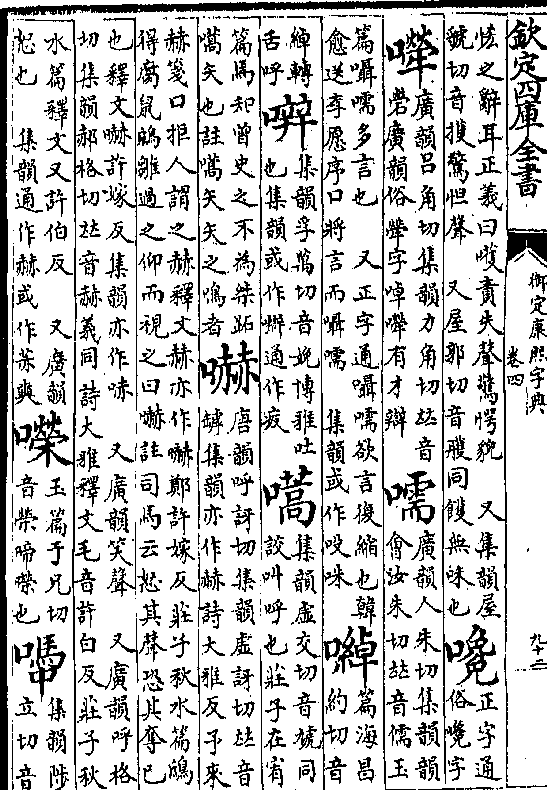 欽定四庫全書
御定康熙字典
卷四
九十二
怯之辭耳正義曰嚄嘖失聲驚愕貌 又集韻屋
虢切音擭驚怛聲 又屋郭切音雘同 無味也
正字通
俗嚵字
廣韻吕角切集韻力角切𠀤音
犖廣韻俗犖字啅 有才辯
嚅
廣韻人朱切集韻韻
會汝朱切𠀤音儒玉
篇囁嚅多言也 又正字通囁嚅欲言復縮也韓
愈送李愿序口將言而囁嚅 集韻或作吺咮
篇海昌
約切音
綽轉
舌呼
集韻孚萬切音娩博雅吐
也集韻或作 通作疲
嚆
集韻虛交切音虓同
詨叫呼也莊子在宥
篇焉知曾史之不為桀跖
嚆矢也註嚆矢矢之鳴者
嚇
唐韻呼訝切集韻虛訝切𠀤音
罅集韻亦作赫詩大雅反予來
赫箋口拒人謂之赫釋文赫亦作嚇鄭許嫁反 莊子秋水篇鴟
得腐鼠鵷雛過之仰而視之曰嚇註司馬云怒其聲恐其奪己
也釋文嚇許嫁反集韻亦作 又廣韻笑聲 又廣韻呼格
切集韻郝格切𠀤音赫義同詩大雅釋文毛音許白反莊子秋
水篇釋文又許伯反 又廣韻
怒也 集韻通作赫或作 奭
玉篇于兄切
音榮啼 也
集韻陟
立切音